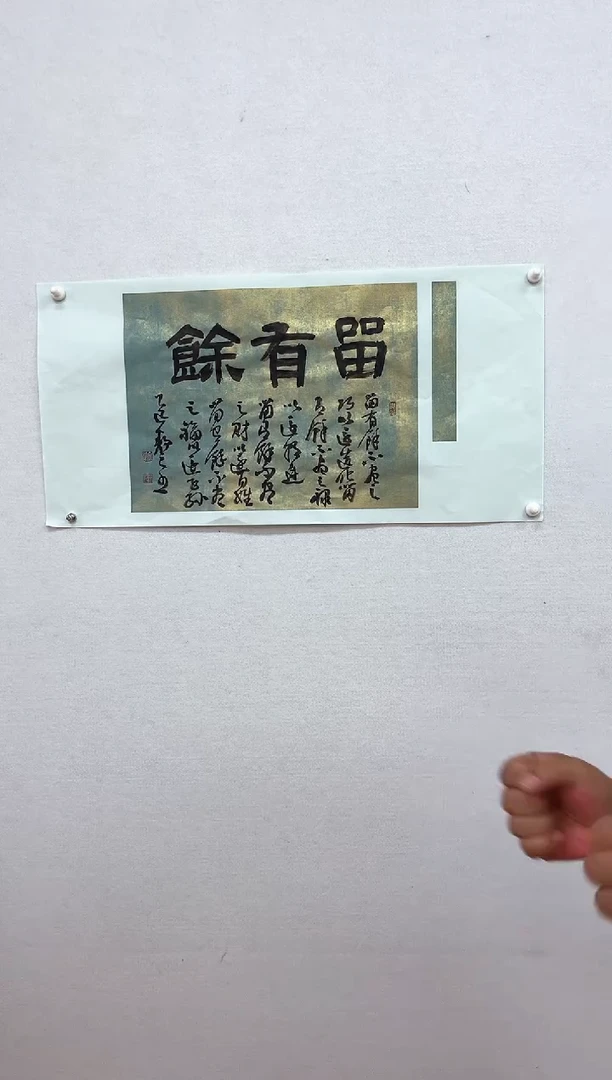 留有餘
留有餘不盡之
巧以還造化留
有餘不盡之祿
以還朝廷
留有餘不盡
之財以還百姓
留有餘不盡
之福以還子孫